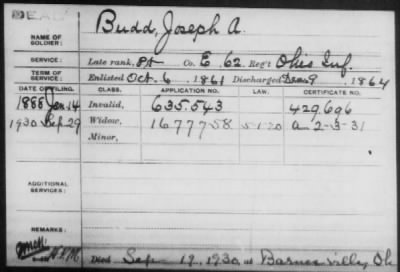 DEAD
NAME OF SOLDIER: Budd, Joseph A.
SERVICE: Late rank, Pt Co. E, 62 Reg't Ohio Inf.
TERM OF SERVICE: Enlisted Oct. 6, 1861 Discharged Dec 9, 1864
DATE OF FILING. CLASS. APPLICATION NO. LAW. CERTIFICATE NO.
1888 Jan. 14 Invalid, 635.543 429,696
1930 Sep 29 Widow, 1677758 5-1-20 a 2-3-31
Minor,
ADDITIONAL SERVICES:
REMARKS:
Died Sep 19, 1930, at Barnesville, Oh